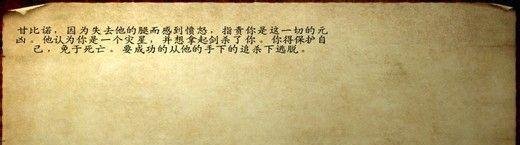 甘比诺，因为失去他的腿而感到愤怒，指责你是这一切的元
凶。他认为你是一个灾星，并想拿起剑杀了你。你得保护自
己，免于死亡。要成功的从他的手下的追杀下逃脱。